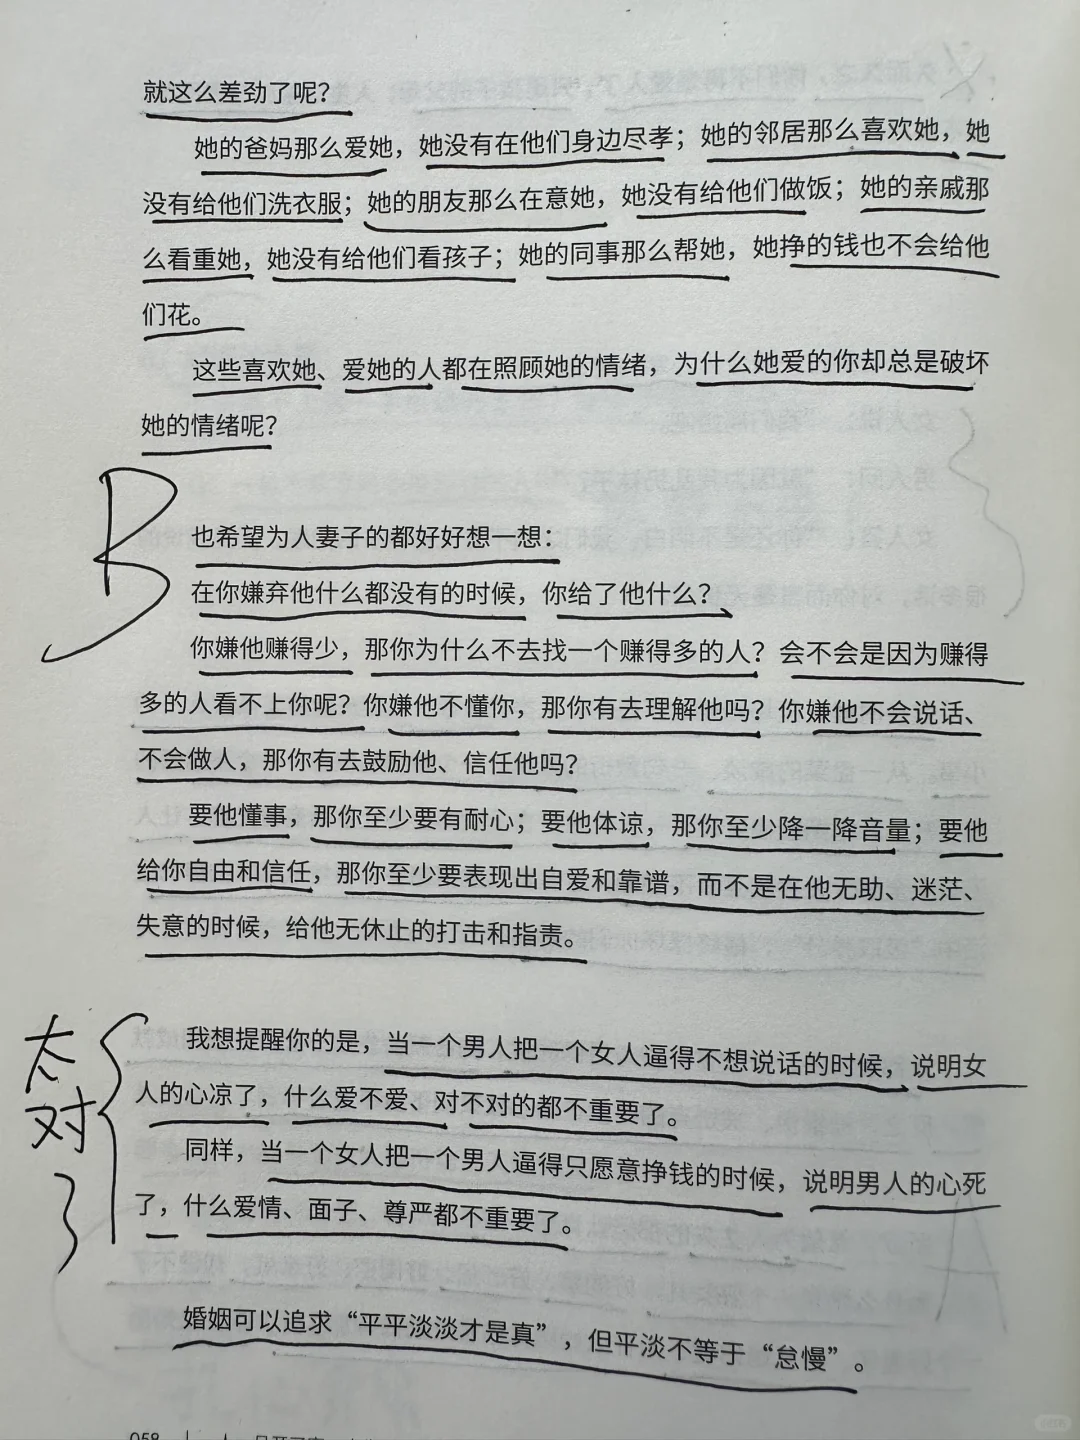 就这么差劲了呢？
她的爸妈那么爱她，她没有在他们身边尽孝；她的邻居那么喜欢她，她
没有给他们洗衣服；她的朋友那么在意她，她没有给他们做饭；她的亲戚那
么看重她，她没有给他们看孩子；她的同事那么帮她，她挣的钱也不会给他
们花。
这些喜欢她、爱她的人都在照顾她的情绪，为什么她爱的你却总是破坏
她的情绪呢？
B
也希望为人妻子的都好好想一想：
在你嫌弃他什么都没有的时候，你给了他什么？
你嫌他赚得少，那你为什么不去找一个赚得多的人？会不会是因为赚得
多的人看不上你呢？你嫌他不懂你，那你有去理解他吗？你嫌他不会说话、
不会做人，那你有去鼓励他、信任他吗？
要他懂事，那你至少要有耐心；要他体谅，那你至少降一降音量；要他
给你自由和信任，那你至少要表现出自爱和靠谱，而不是在他无助、迷茫、
失意的时候，给他无休止的打击和指责。
太对了
我想提醒你的是，当一个男人把一个女人逼得不想说话的时候，说明女
人的心凉了，什么爱不爱、对不对的都不重要了。
同样，当一个女人把一个男人逼得只愿意挣钱的时候，说明男人的心死
了，什么爱情、面子、尊严都不重要了。
婚姻可以追求“平平淡淡才是真”，但平淡不等于“怠慢”。
058